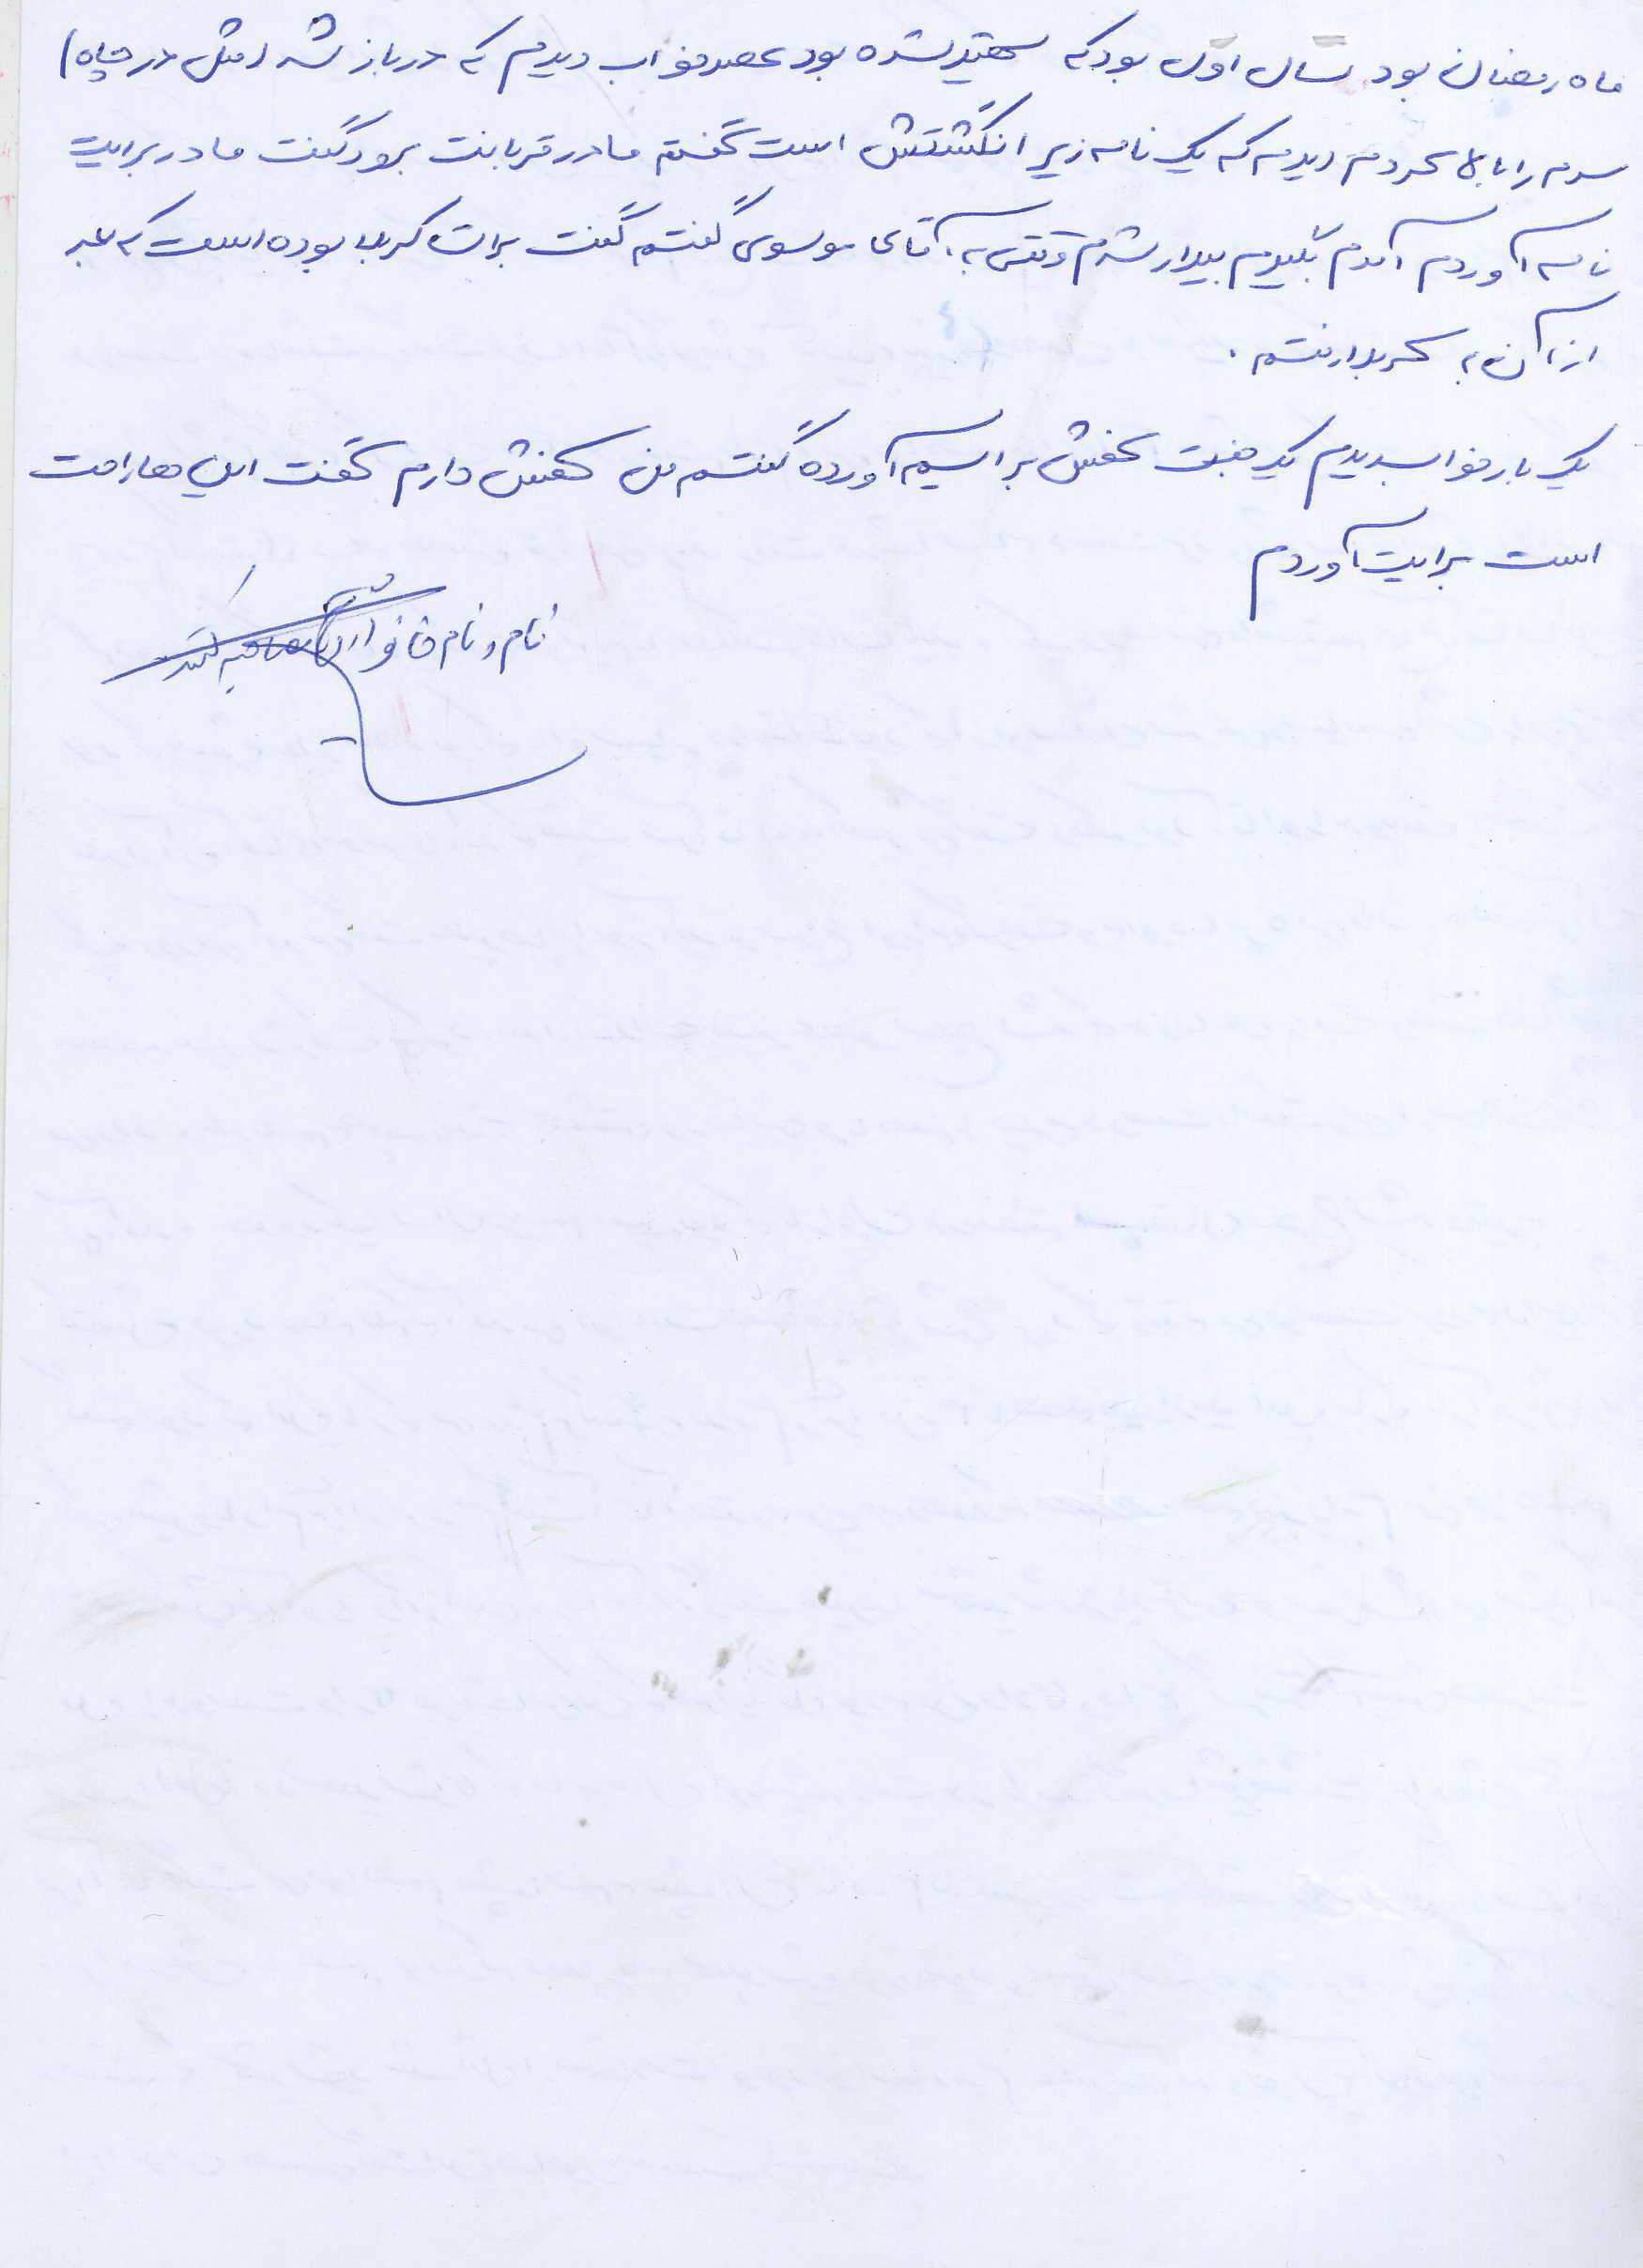 ماه رمضان بود سال اول بود که شهید شده بود عصر خواب دیدم که در باز شد (مثل در چاه)
سرم را بالا کردم دیدم که یک نامه زیر انگشتش است گفتم مادر قربانت برود گفت مادر برایت
نامه آوردم آمدم بگیرم بیدار شدم وقتی به آقای موسوی گفتم گفت برات کربلا بوده است که بعد
از آن به کربلا رفتم.
یک بار خواب دیدم یک جفت کفش برایم آورده گفتم من کفش دارم گفت این ها راحت
است برایت آوردم
نام و نام خانوادگی